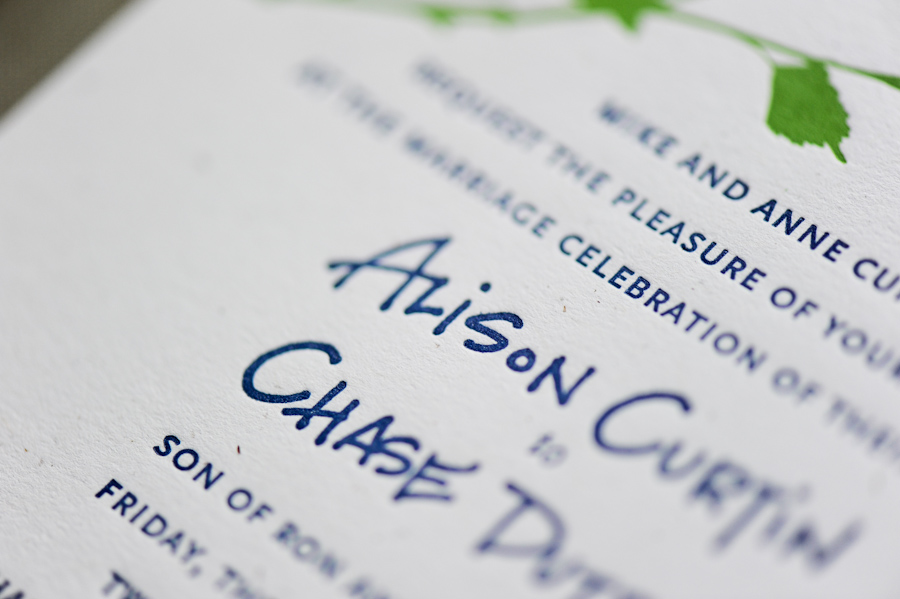 MIKE AND ANNE
REQUEST THE PLEASURE OF YOUR
AT THE MARRIAGE CELEBRATION OF THEIR
ALISON CURTIN
to
CHASE
SON OF RON
FRIDAY,